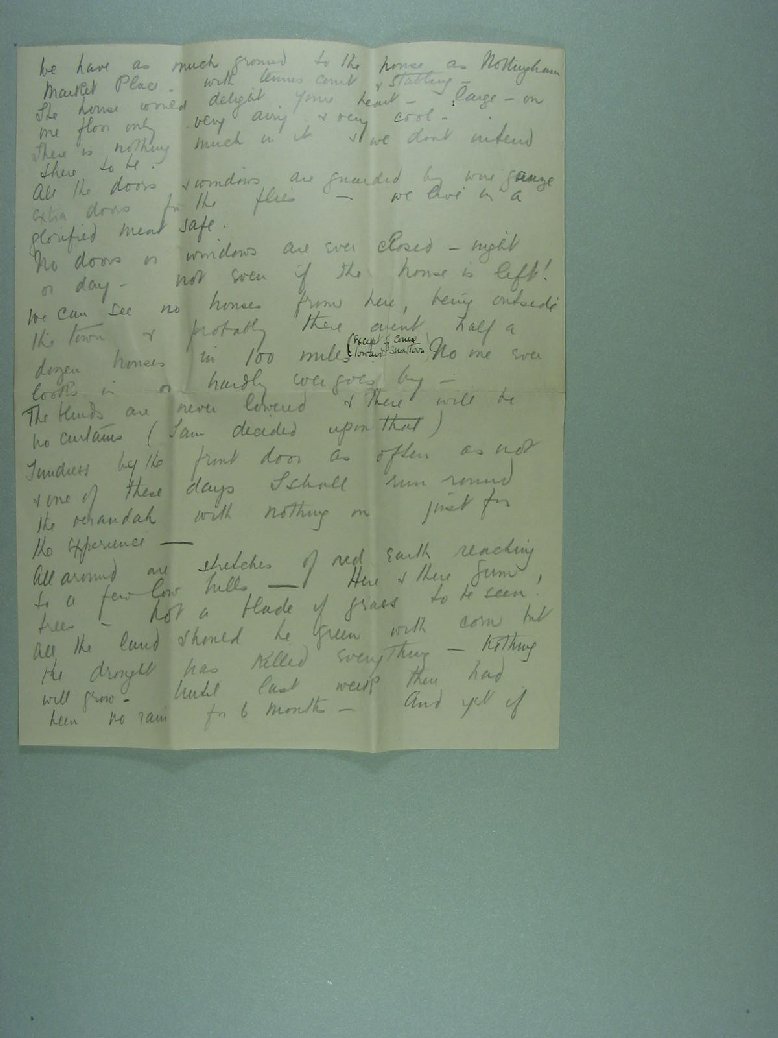 We have as much ground to the house as Nottingham
Market Place - with tennis court & stabling -
The house would delight your heart - large - on
one floor only very airy & very cool -
There is nothing much in it & we dont intend
there to be.
All the doors & windows are guarded by wire gauze
extra doors for the flies - we live in a
glorified meat safe.
No doors or windows are ever closed - night
or day - not even if the house is left!
We can see no houses from here, being outside
the town & probably there arent half a
dozen houses in 100 miles (except of course
toward Swan Town) No one ever
looks in or hardly ever goes by -
The blinds are never lowered & there will be
no curtains (I am decided upon that)
I undress by the front door as often as not
& one of these days I shall run round
the verandah with nothing on just for
the experience -
All around are stretches of red earth reaching
to a few low hills - Here & there gum
trees - not a blade of grass to be seen!
All the land should be green with corn but
the drought has killed everything - Nothing
will grow - Until last week they had
been no rain for 6 months - And yet if